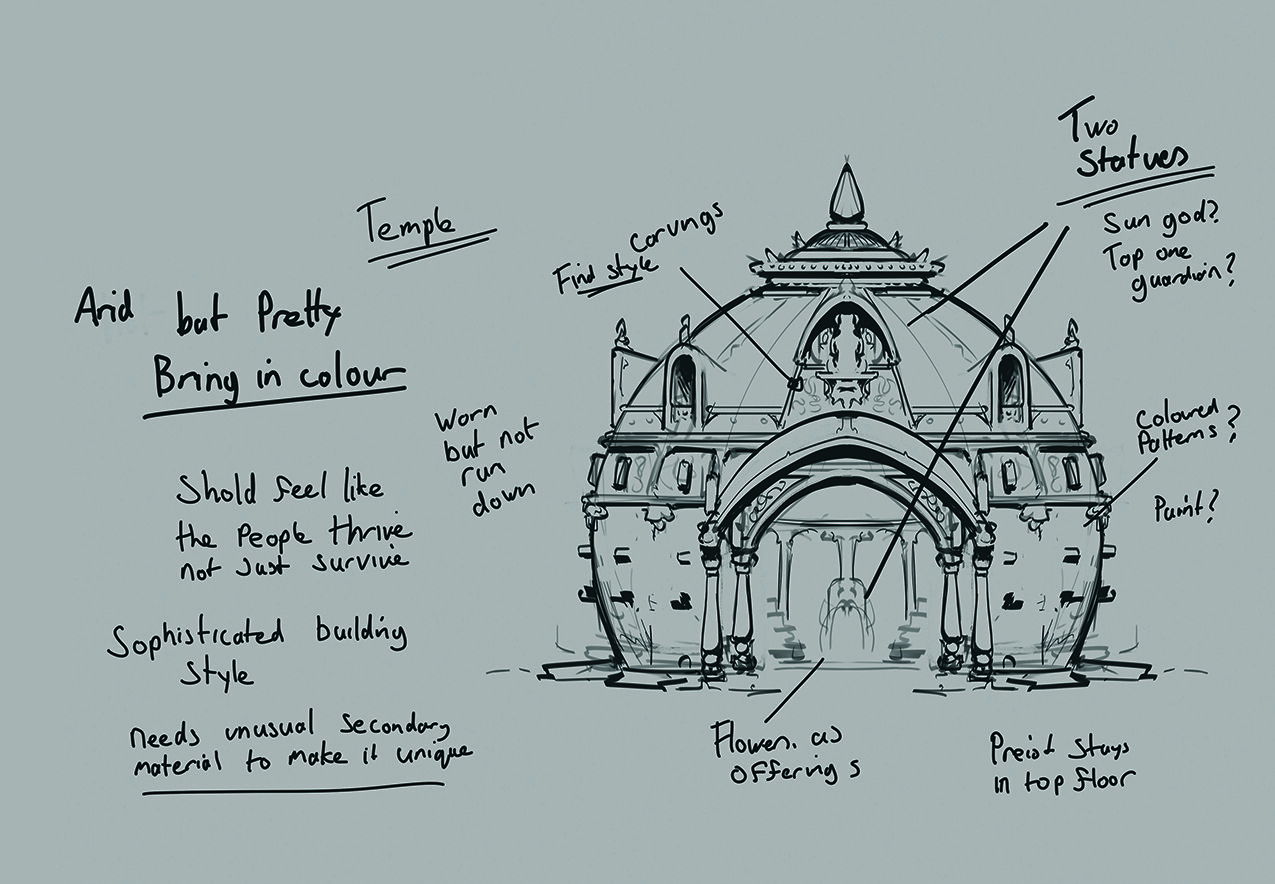 Temple
Arid but Pretty
Bring in colour
Shold feel like
the People thrive
not Just survive
Sophisticated building
Style
needs unusual secondary
material to make it unique
Worn
but not
run
down
carvings
Find style
Two
Statues
Sun god?
Top one
guardian?
Coloured
Patterns?
Paint?
Flowers as
offerings
Preist stays
in top floor